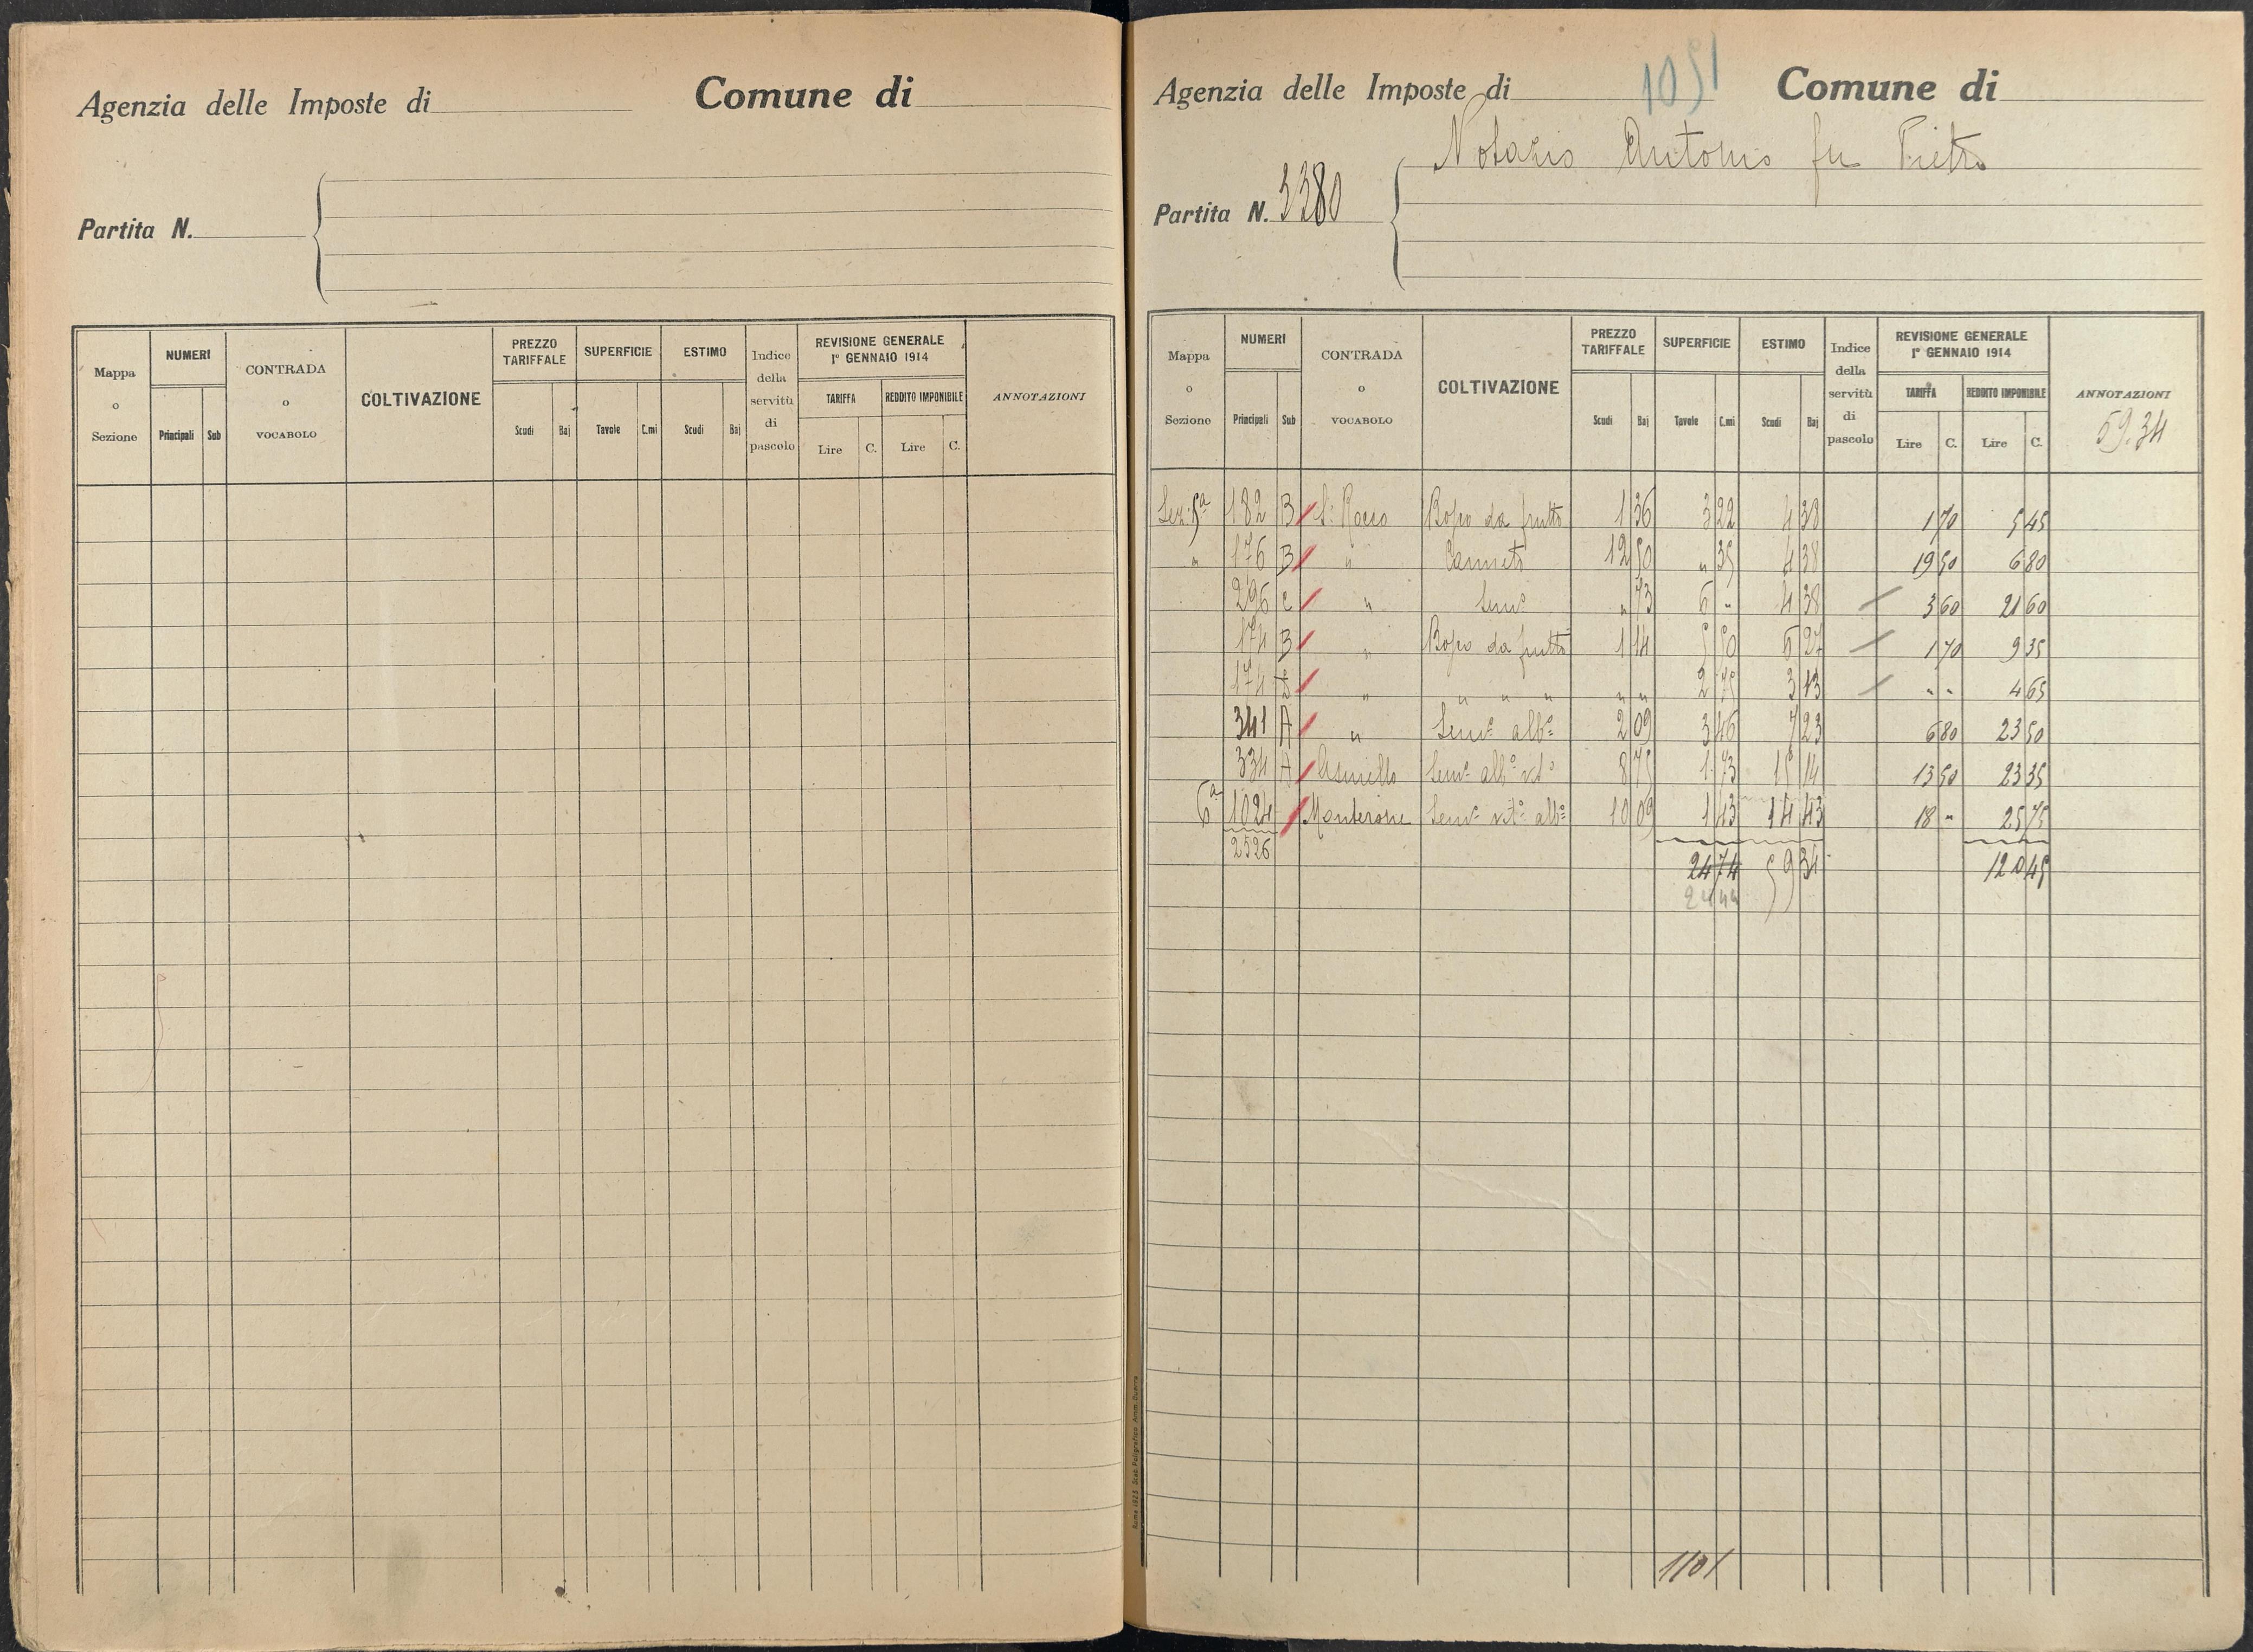 Agenzia delle Imposte di Comune di
Partita N.
Mappa o Sezione NUMERI Principali Sub CONTRADA o VOCABOLO COLTIVAZIONE PREZZO TARIFFALE Scudi Baj SUPERFICIE Tavole C.mi ESTIMO Scudi Baj Indice della servitù di pascolo REVISIONE GENERALE 1° GENNAIO 1914 TARIFFA Lire C. REDDITO IMPONIBILE Lire C. ANNOTAZIONI
1051
Agenzia delle Imposte di Comune di
Notario Antonio fu Pietro
Partita N. 3380
Mappa o Sezione NUMERI Principali Sub CONTRADA o VOCABOLO COLTIVAZIONE PREZZO TARIFFALE Scudi Baj SUPERFICIE Tavole C.mi ESTIMO Scudi Baj Indice della servitù di pascolo REVISIONE GENERALE 1° GENNAIO 1914 TARIFFA Lire C. REDDITO IMPONIBILE Lire C. ANNOTAZIONI
59.34
Sez. 5a 182 B S. Rocco Bosco da frutto 1 36 3 22 4 38 1 70 5 45
" 176 B " Canneto 12 50 " 35 4 38 19 50 6 80
296 C " Semo " 73 6 " 4 38 3 60 21 60
174 B " Bosco da frutto 1 14 5 50 6 27 1 70 9 35
174 " " " " " " 2 75 3 13 " " 4 65
341 A " Semo albo 2 09 3 46 7 23 6 80 23 50
334 A Asinello Semo albo vito 8 75 1 73 15 14 13 50 23 35
6a 1024 Monterone Semo vito albo 10 09 1 43 14 43 18 " 25 75
2526 24 74 59 34 120 45
24 44
1101
Roma 1923 Stab. Poligrafico Amm. Guerra